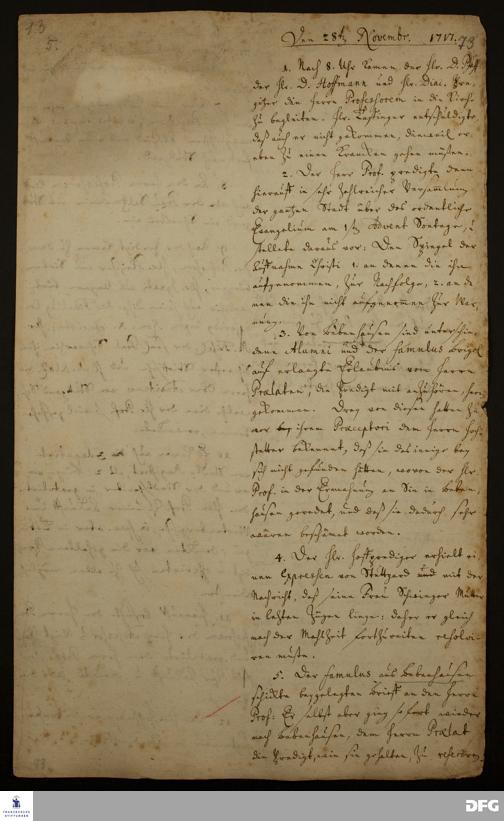 13
5.
Den 28t. Novembr. 1717. 73
1. Nach 8. Uhr kamen, der Hr. D. Pfaff
der Hr. D. Hoffmann und Hr. Diac.
den Herrn Professorem in die Kirch
zu begleiten. Hr. entschuldigte,
daß auch er nicht gekommen, dieweil er
eben zu einen Krancken gehen müßen.
2. Der Herr Prof. predigte denn
hierauff in sehr zahlreicher Versammlung
der gantzen Stadt über das ordentliche
Evangelium am 1t. Advent Sontage,
stellete daraus vor: Den Spiegel der
Aufnahme Christi 1. an denen die ihn
aufgenommen, zur Nachfolge, 2. an de
nen die ihn nicht aufgenommen zur War
nung.
3. Von Bebenhausen sind unterschie
dene Alumni und der famulus
auf erlangte Erlaubnis vom Herrn
Prælaten, die Predigt mit anzuhören, her
gekommen. Drey von diesen hatten zu
vor ihrem Præceptori dem Herrn Hoch
stetter bekennet, daß sie das innige bey
sich nicht gefunden hätten, wovon der Hr.
Prof. in der Ermahnung an Sie in Beben
hausen geredet, und daß sie dadurch sehr
wären beschämet worden.
4. Der Hr. Hoffprediger erhielt ei
nen Expressen von Stuttgard und mit der
Nachricht, daß seine Frau Schwieger Mutter
in letzten Zügen liege: daher er gleich
nach der Mahlzeit fortzureiten resolvi
ren muste.
5. Der famulus aus Bebenhausen
schickte beygelegten Brieff an den Herrn
Prof: Er selbst aber ging so fort wieder
nach Bebenhausen, dem Herrn Prælat
die Predigt, wie sie gehalten, zu referiren.
FRANCKESCHE
STIFTUNGEN
DFG